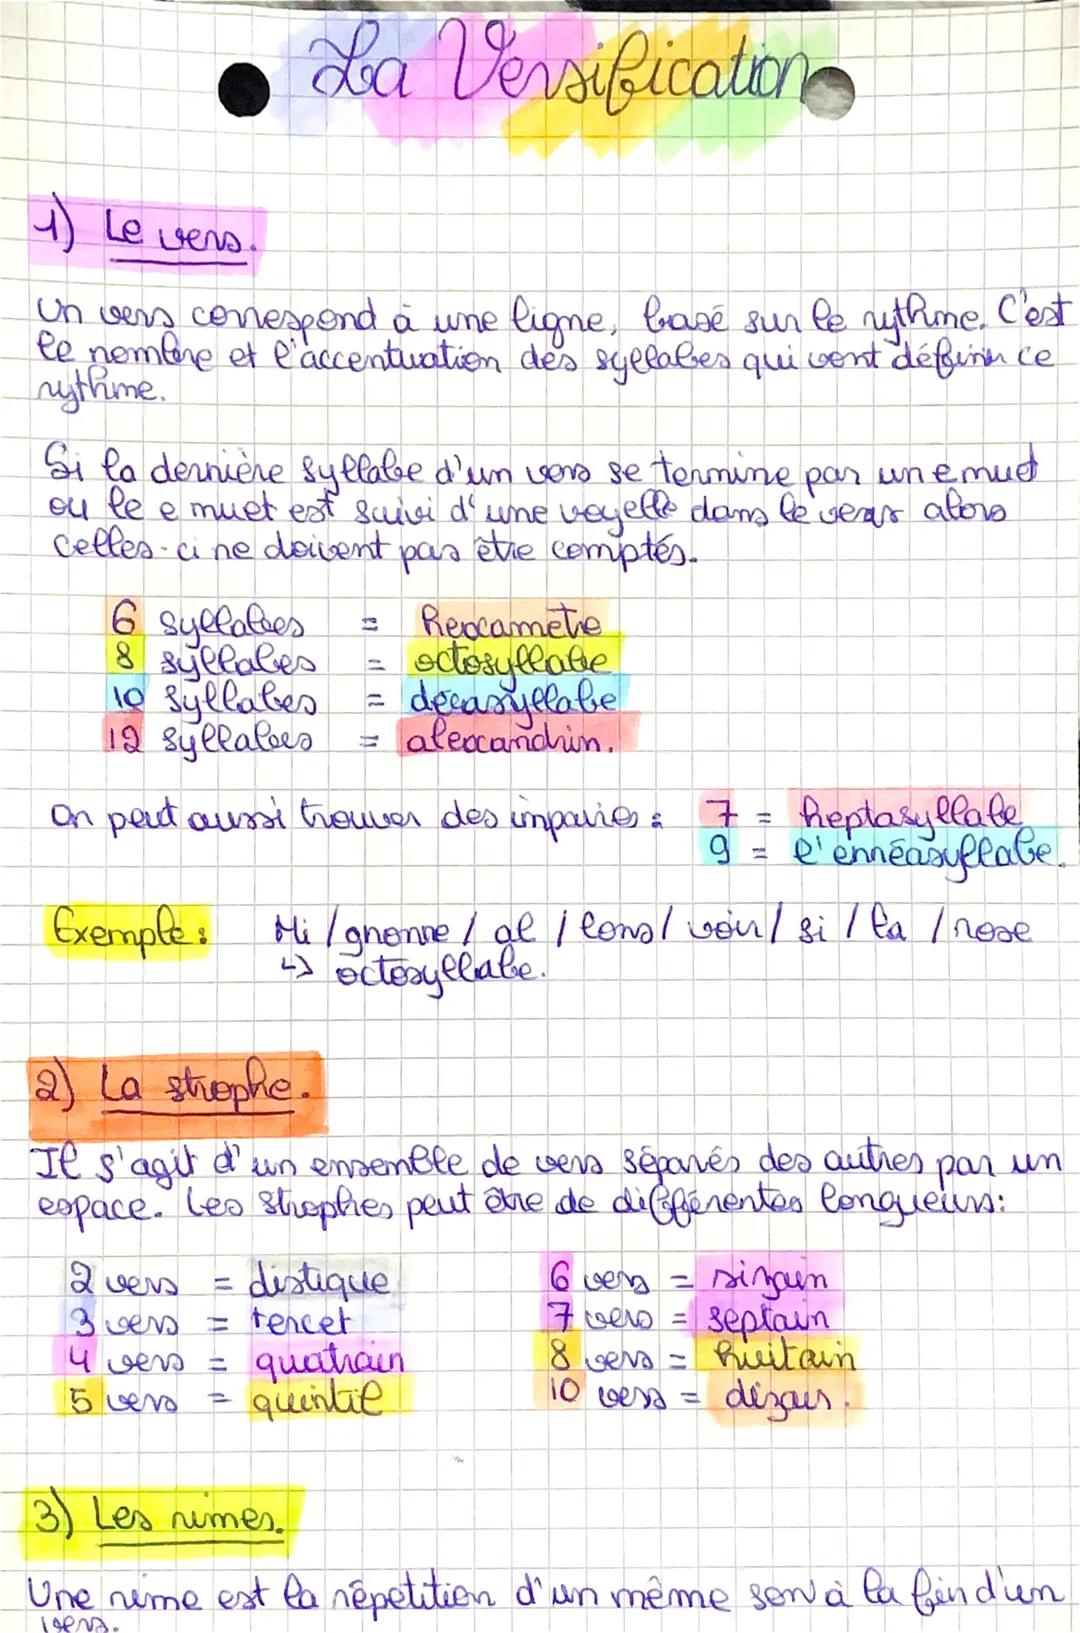 La Versification
1) Le vers.
Un vers correspond à une ligne, basé sur le rythme. C'est
le nombre et l'accentuation des syllabes qui vont définir ce
rythme.
Si la dernière syllabe d'un vers se termine par un e muet
ou le e muet est suivi d'une voyelle dans le vers alors
celles-ci ne doivent pas être comptés.
6 syllabes = hexamètre
8 syllabes = octosyllabe
10 syllabes = décasyllabe
12 syllabes = alexandrin.
On peut aussi trouver des impairs : 7 = heptasyllabe
9 = l'ennéasyllabe.
Exemple : Mi / gnonne / al / lons / voir / si / la / rose
↳ octosyllabe.
2) La strophe.
Il s'agit d'un ensemble de vers séparés des autres par un
espace. Les strophes peut être de différentes longueurs :
2 vers = distique 6 vers = sizain
3 vers = tercet 7 vers = septain
4 vers = quatrain 8 vers = huitain
5 vers = quintil 10 vers = dizais.
3) Les rimes.
Une rime est la répétition d'un même son à la fin d'un
vers.